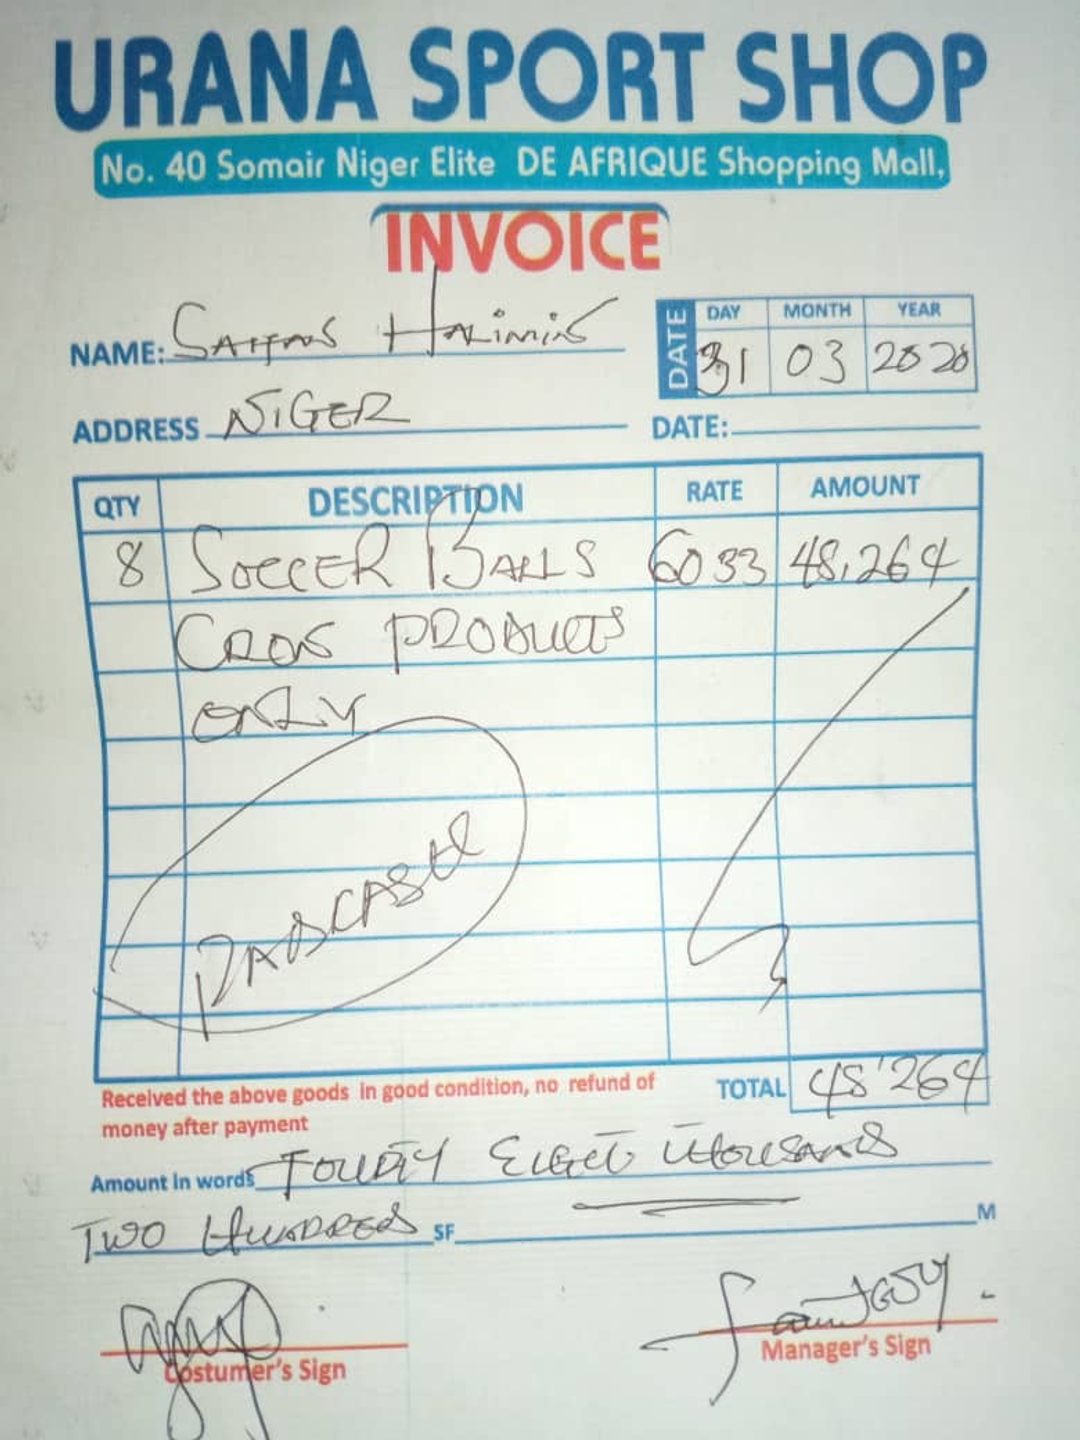 URANA SPORT SHOP
No. 40 Somair Niger Elite DE AFRIQUE Shopping Mall,
INVOICE
NAME:
DATE DAY MONTH YEAR
31 03 2020
ADDRESS NIGER
DATE:
QTY DESCRIPTION RATE AMOUNT
8 SOCCER BALLS 6033 48,264
PRODUCTS
ONLY
Received the above goods in good condition, no refund of
money after payment
TOTAL 48'264
Amount in words EIGHT THOUSANDS
TWO HUNDRED SF M
Costumer's Sign
Manager's Sign